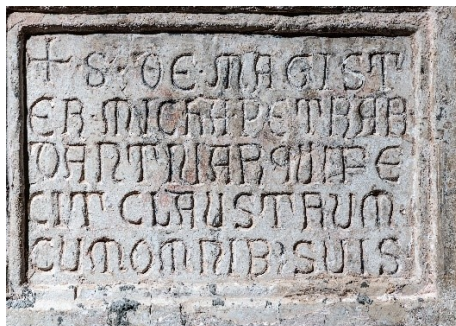 + S : DE · MAGIST
ER · MICHA PETRAR
DANTIVAR QUI FE
CIT CLAUSTRUM
CUM OMNIB : SUIS